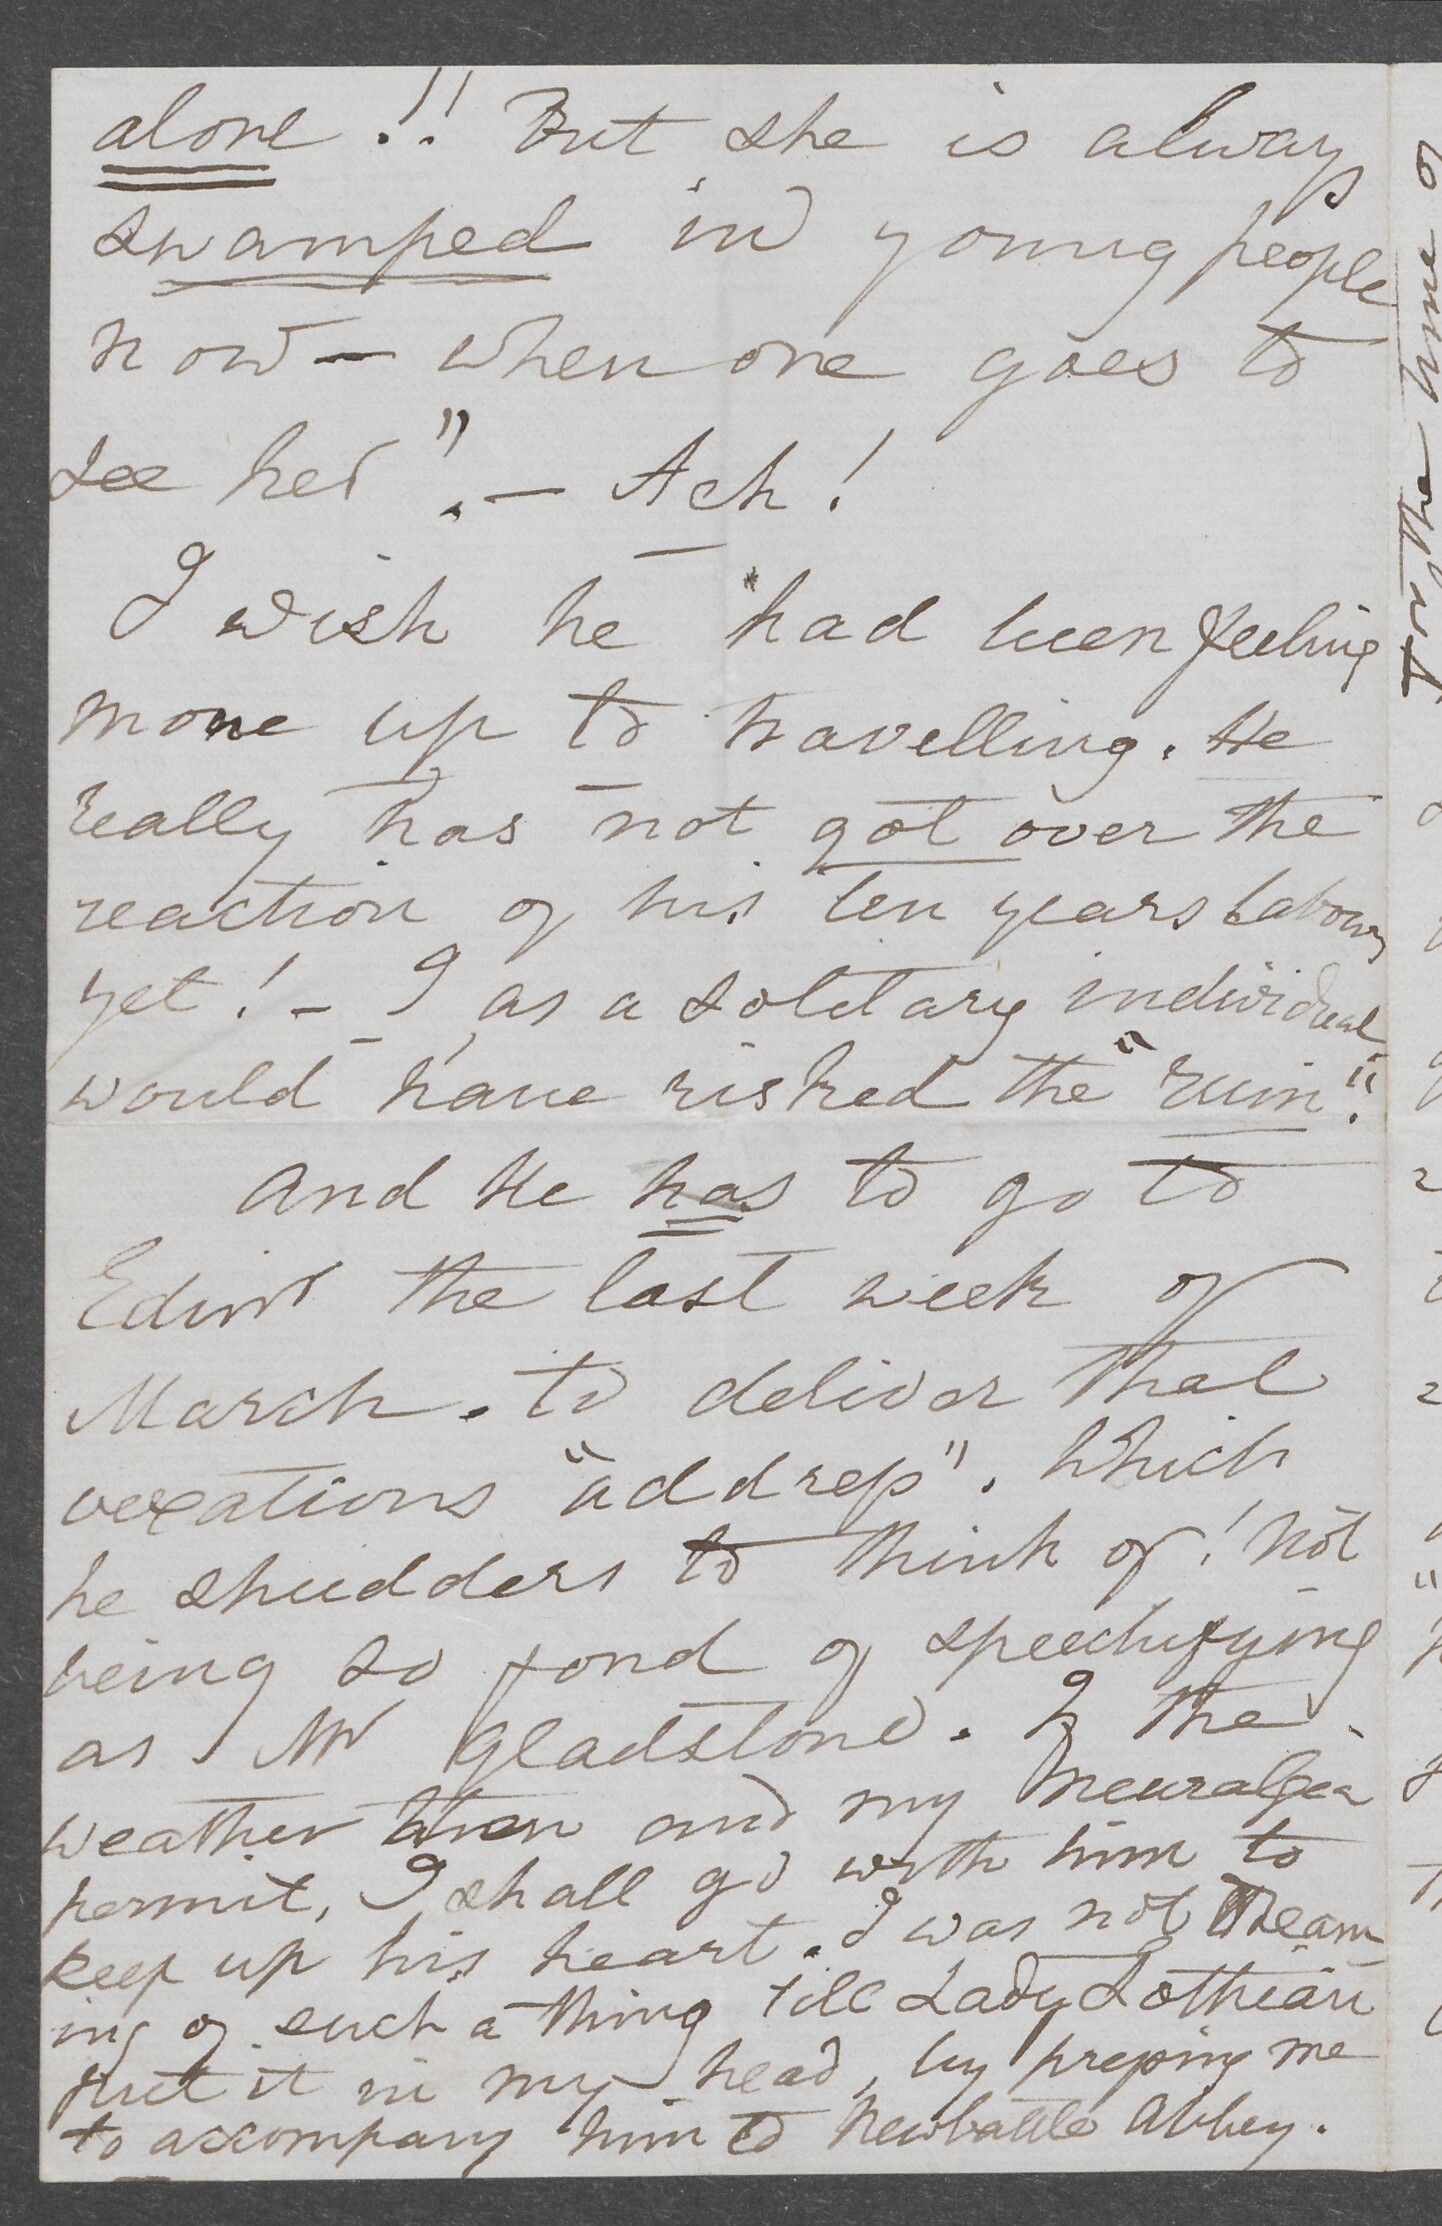 alone!! But she is always
swamped in young people
now — when one goes to
see her". — Ach!
I wish he had been feeling
more up to travelling. He
really has not got over the
reaction of his ten years labours
yet! — I, as a solitary individual
would have risked the "ruin".
And He has to go to
Edinr the last week of
March. to deliver that
vexatious "address". Which
he shudders to think of! Not
being so fond of speechifying
as Mr Gladstone. If the
weather then and my neuralgia
permit, I shall go with him to
keep up his heart. I was not dream
ing of such a thing till Lady Lothian
put it in my head, by pressing me
to accompany him to Newbattle Abbey.